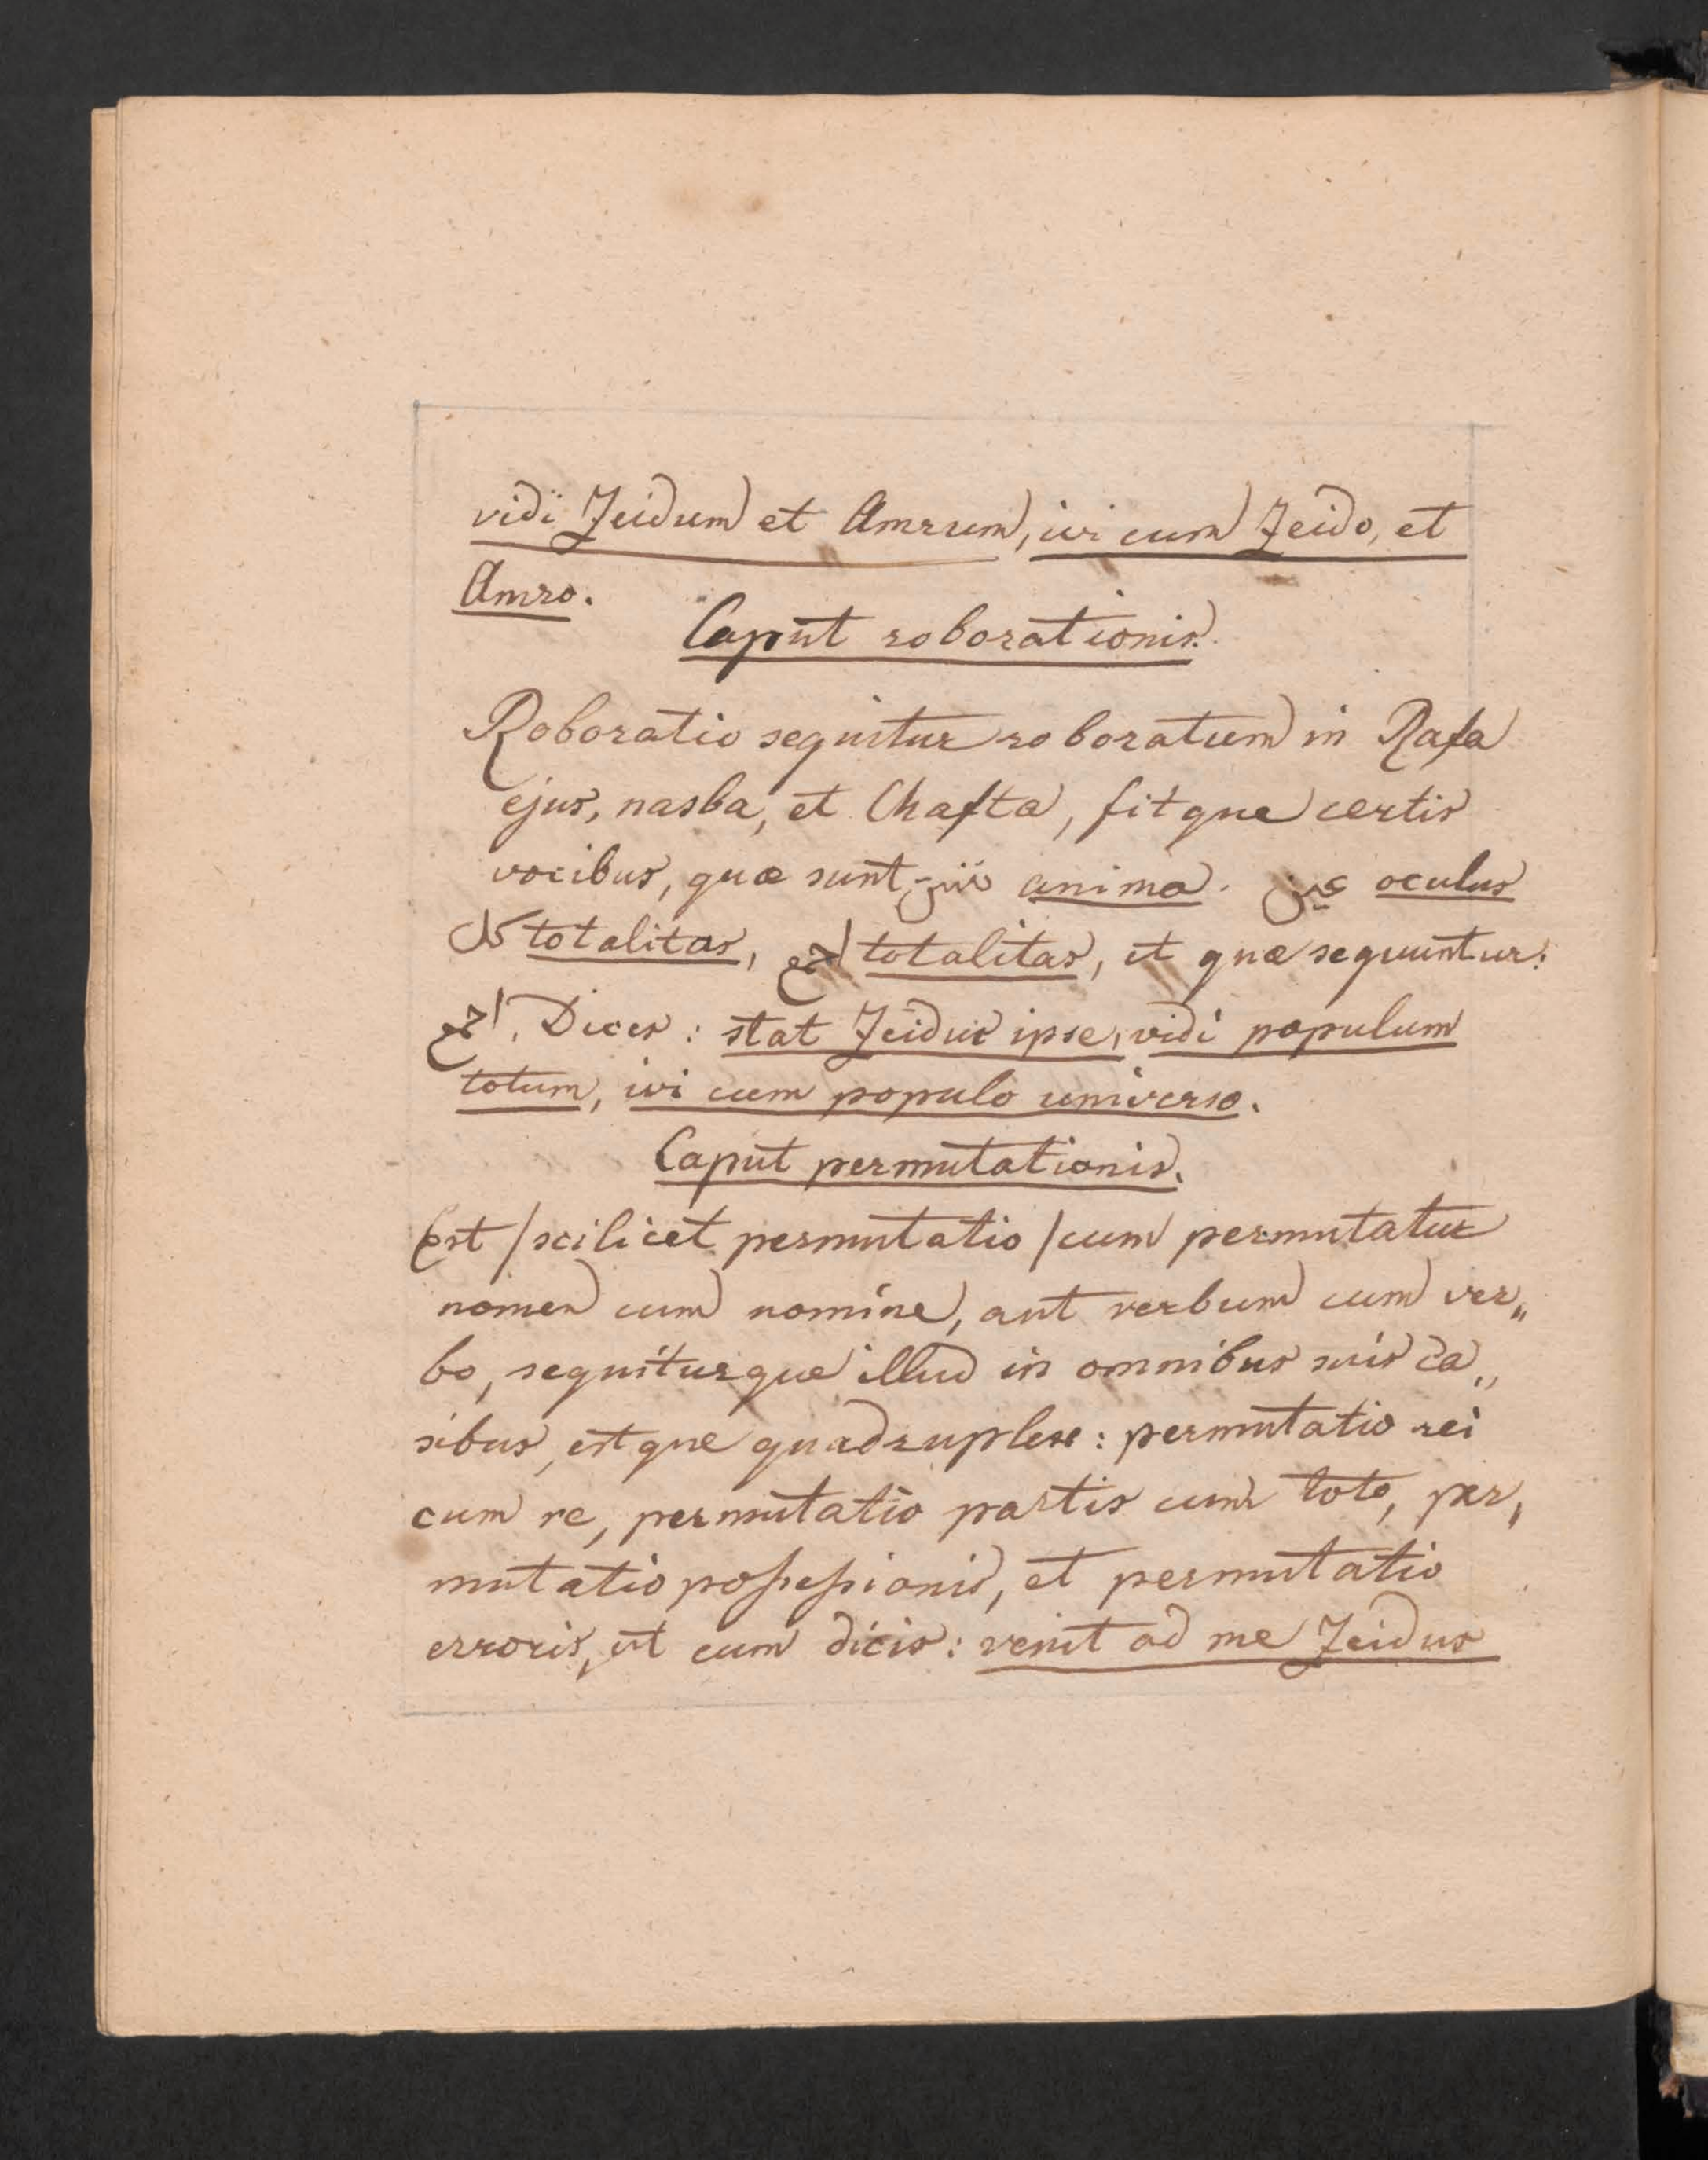 vidi Zeidum et Amrum, ivi cum Zeido, et
Amro.
Caput roborationis.
Roboratio sequitur roboratum in Rafa
ejus, nasba, et Chafta, fitque certis
vocibus, quæ sunt نفس anima. عين oculus
كل totalitas, اجمع totalitas, et quæ sequuntur:
اجمع. Dices: stat Zeidus ipse, vidi populum
totum, ivi cum populo universo.
Caput permutationis.
Est /scilicet permutatio/ cum permutatur
nomen cum nomine, aut verbum cum ver„
bo, sequiturque illud in omnibus suis ca„
sibus, estque quadruplex: permutatio rei
cum re, permutatio partis cum toto, per„
mutatio possessionis, et permutatio
erroris, ut cum dicis: venit ad me Zeidus